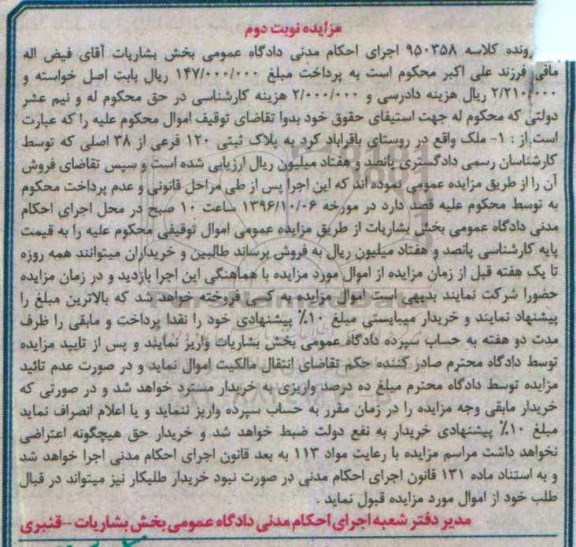 مزایده نوبت دوم
رونده کلاسه ۹۵۰۳۵۸ اجرای احکام مدنی دادگاه عمومی بخش بشاریات آقای فیض اله
مافی فرزند علی اکبر محکوم است به پرداخت مبلغ ۱۴۷/۰۰۰/۰۰۰ ریال بابت اصل خواسته و
۲/۲۱۰/۰۰۰ ریال هزینه دادرسی و ۲/۰۰۰/۰۰۰ هزینه کارشناسی در حق محکوم له و نیم عشر
دولتی که محکوم له جهت استیفای حقوق خود بدوا تقاضای توقیف اموال محکوم علیه را که عبارت
است از : ۱- ملک واقع در روستای باقراباد کرد به پلاک ثبتی ۱۲۰ فرعی از ۳۸ اصلی که توسط
کارشناسان رسمی دادگستری پانصد و هفتاد میلیون ریال ارزیابی شده است و سپس تقاضای فروش
آن را از طریق مزایده عمومی نموده اند که این اجرا پس از طی مراحل قانونی و عدم پرداخت محکوم
به توسط محکوم علیه قصد دارد در مورخه ۱۳۹۶/۱۰/۰۶ ساعت ۱۰ صبح در محل اجرای احکام
مدنی دادگاه عمومی بخش بشاریات از طریق مزایده عمومی اموال توقیفی محکوم علیه را به قیمت
پایه کارشناسی پانصد و هفتاد میلیون ریال به فروش برساند طالبین و خریداران میتوانند همه روزه
تا یک هفته قبل از زمان مزایده از اموال مورد مزایده با هماهنگی این اجرا بازدید و در زمان مزایده
حضورا شرکت نمایند بدیهی است اموال مزایده به کسی فروخته خواهد شد که بالاترین مبلغ را
پیشنهاد نمایند و خریدار میبایستی مبلغ ۱۰٪ پیشنهادی خود را نقدا پرداخت و مابقی را ظرف
مدت دو هفته به حساب سپرده دادگاه عمومی بخش بشاریات واریز نمایند و پس از تایید مزایده
توسط دادگاه محترم صادر کننده حکم تقاضای انتقال مالکیت اموال نماید و در صورت عدم تائید
مزایده توسط دادگاه محترم مبلغ ده درصد واریزی به خریدار مسترد خواهد شد و در صورتی که
خریدار مابقی وجه مزایده را در زمان مقرر به حساب سپرده واریز ننماید و یا اعلام انصراف نماید
مبلغ ۱۰٪ پیشنهادی خریدار به نفع دولت ضبط خواهد شد و خریدار حق هیچگونه اعتراضی
نخواهد داشت مراسم مزایده با رعایت مواد ۱۱۳ به بعد قانون اجرای احکام مدنی اجرا خواهد شد
و به استناد ماده ۱۳۱ قانون اجرای احکام مدنی در صورت نبود خریدار طلبکار نیز میتواند در قبال
طلب خود از اموال مورد مزایده قبول نماید .
مدیر دفتر شعبه اجرای احکام مدنی دادگاه عمومی بخش بشاریات -قنبری